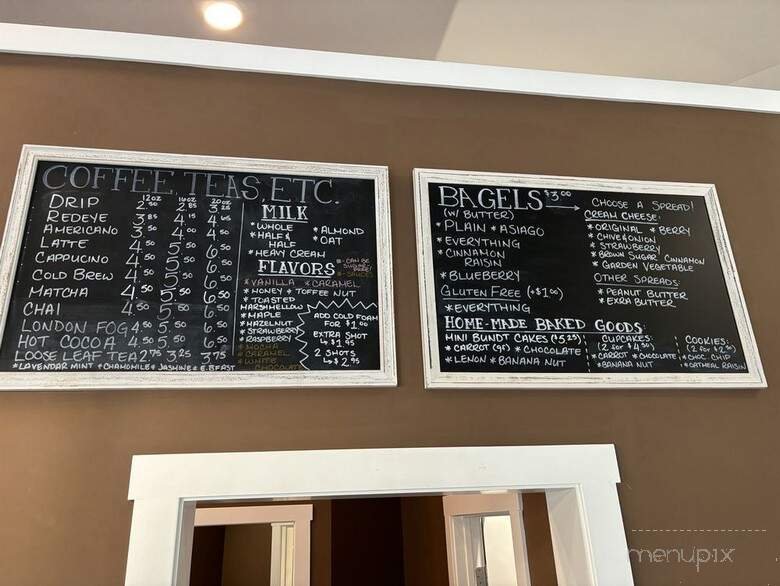 COFFEE, TEAS, ETC.
12oz 16oz 20oz
DRIP 2.50 2.85 3.25
REDEYE 3.85 4.15 4.65
AMERICANO 3.50 4.00
LATTE 4.50 5.50 6.50
CAPPUCINO 4.50 5.50 6.50
COLD BREW 4.50 5.50 6.50
MATCHA 4.50 5.50 6.50
CHAI 4.50 5.50 6.50
LONDON FOG 4.50 5.50 6.50
HOT COCOA 4.50 5.50 6.50
LOOSE LEAF TEA 2.75 3.25 3.75
*LAVENDAR MINT *CHAMOMILE *JASMINE *E.BFAST
MILK
*WHOLE *ALMOND
*HALF & HALF *OAT
*HEAVY CREAM
FLAVORS
*CAN BE
SUGAR FREE!
*SAUCES
*VANILLA *CARAMEL
*HONEY *TOFFEE NUT
*TOASTED
MARSHMELLOW
*MAPLE
*HAZELNUT
*STRAWBERRY
*RASPBERRY
*MOCHA
*CARAMEL
*WHITE
CHOCOLATE
ADD COLD FOAM
FOR $1.00
EXTRA SHOT
$1.95
2 SHOTS
$2.95
BAGELS $3.00
(W/ BUTTER)
*PLAIN *ASIAGO
*EVERYTHING
*CINNAMON
RAISIN
*BLUEBERRY
GLUTEN FREE (+$1.00)
*EVERYTHING
CHOOSE A SPREAD!
CREAM CHEESE:
*ORIGINAL *BERRY
*CHIVE & ONION
*STRAWBERRY
*BROWN SUGAR CINNAMON
*GARDEN VEGETABLE
OTHER SPREADS:
*PEANUT BUTTER
*EXTRA BUTTER
HOME-MADE BAKED GOODS:
MINI BUNDT CAKES ($5.25)
*CARROT *CHOCOLATE
*LEMON *BANANA NUT
CUPCAKES:
*CARROT *CHOCOLATE
*BANANA NUT
COOKIES:
*CHOC. CHIP
*OATMEAL RAISIN
menupix